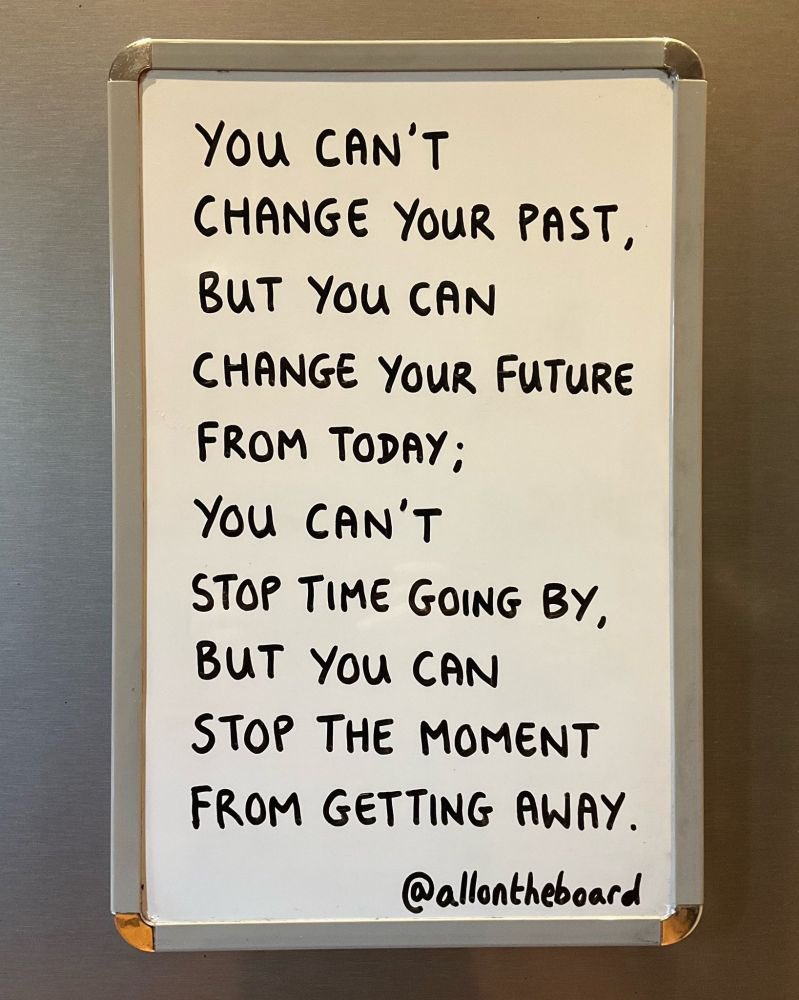 YOU CAN'T
CHANGE YOUR PAST,
BUT YOU CAN
CHANGE YOUR FUTURE
FROM TODAY;
YOU CAN'T
STOP TIME GOING BY,
BUT YOU CAN
STOP THE MOMENT
FROM GETTING AWAY.
@allontheboard